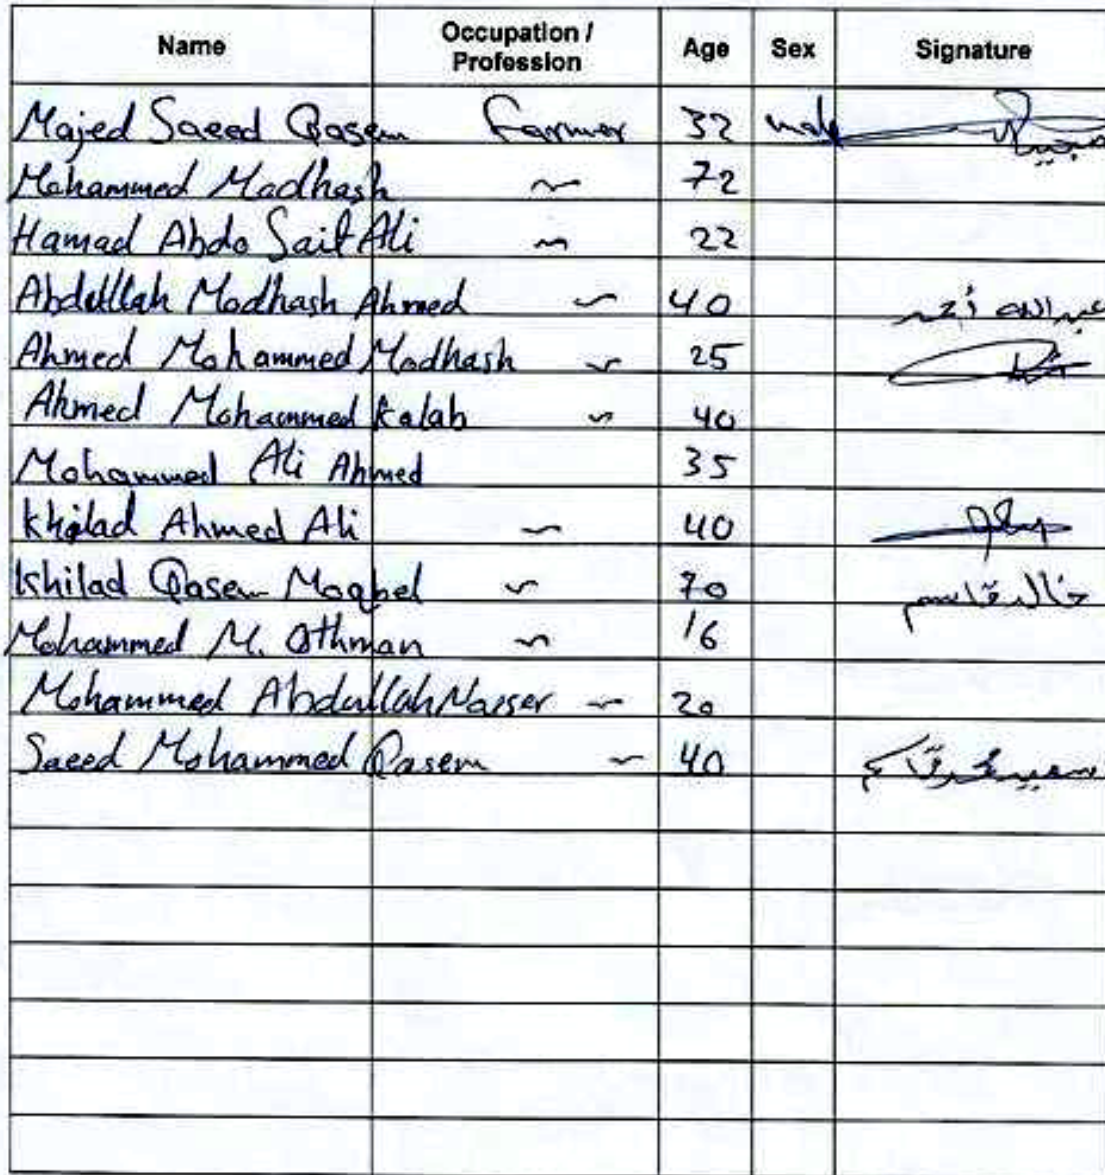 Name Occupation / Profession Age Sex Signature
Majed Saeed Qasem Farmer 32 male
Mohammed Madhash ~ 72
Hamad Abdo Saif Ali ~ 22
Abdullah Modhash Ahmed ~ 40 عبدالله أحمد
Ahmed Mohammed Madhash ~ 25
Ahmed Mohammed Kalab ~ 40
Mohammed Ali Ahmed 35
Khilad Ahmed Ali ~ 40
Khilad Qasem Moqbel ~ 70 خالد قاسم
Mohammed M. Othman ~ 16
Mohammed Abdullah Nasser ~ 20
Saeed Mohammed Qasem ~ 40 سعيد محمد قاسم